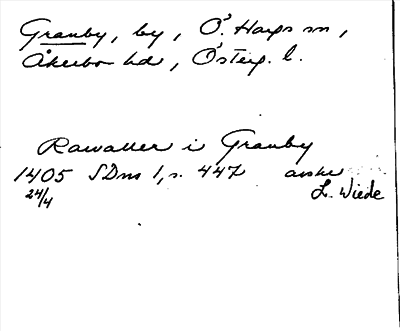 Granby, by, Ö. Hargs sn,
Åkerbo hd, Österg. l.
Rawalder i Granby
1405 SDns 1, s. 447 avskr
24/4 L. Wiede